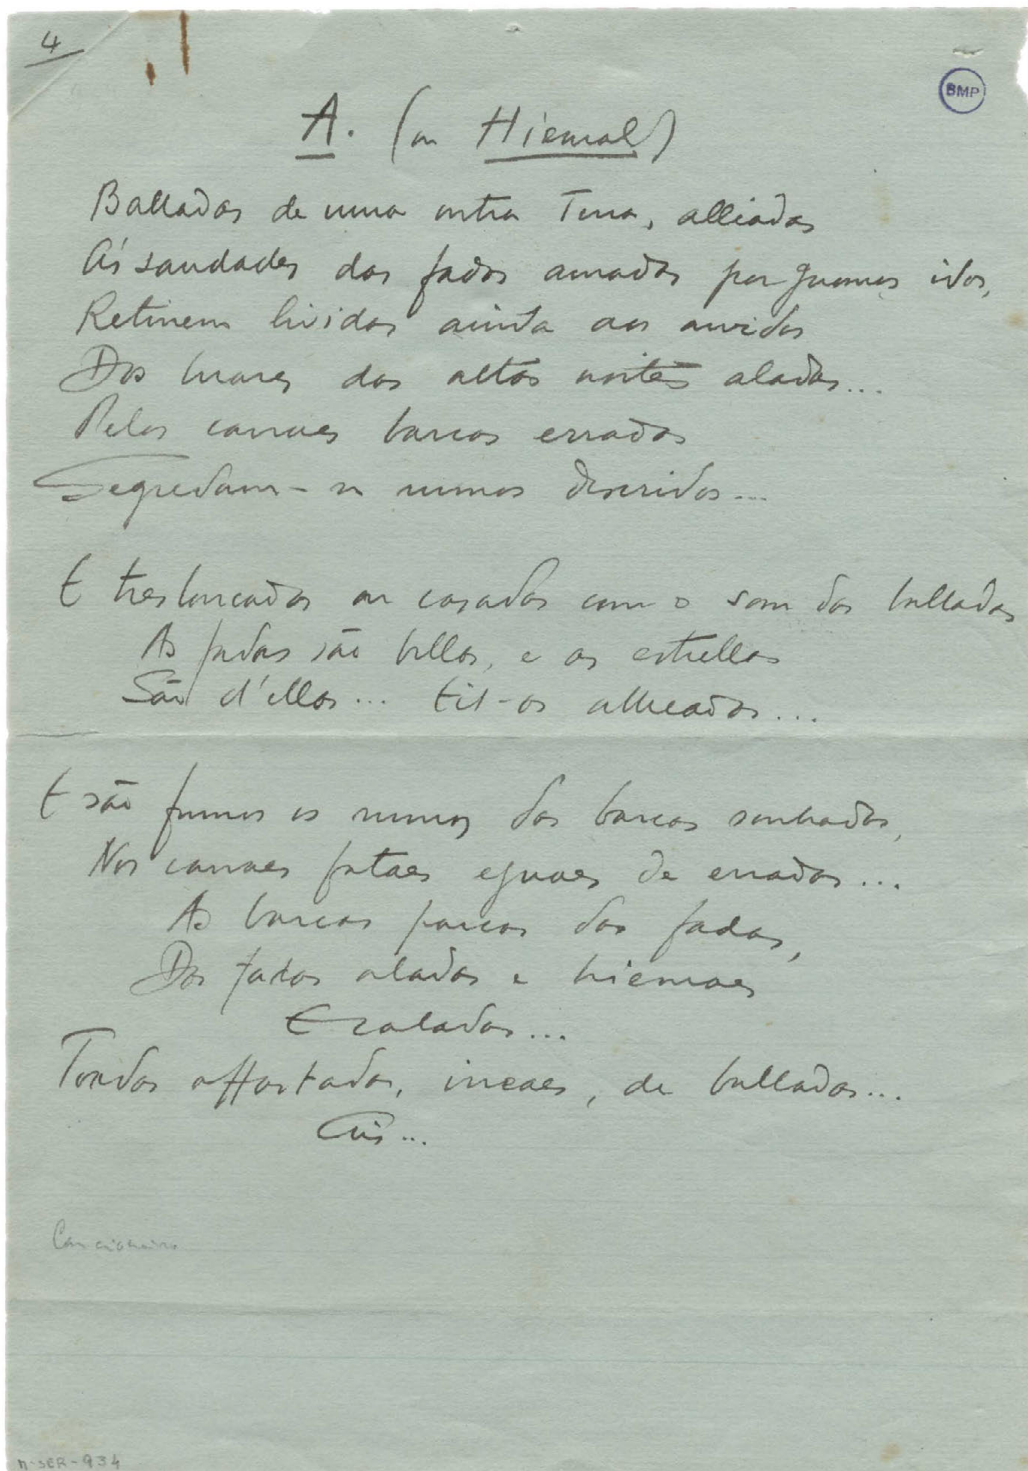 4
BMP
A. (ou Hiemal)
Balladas de uma outra Terra, alliadas
Ás saudades das fadas, amadas por gnomos idos,
Retinem lividas ainda aos ouvidos
Dos luares das altas noites aladas...
Pelos canaes barcas erradas
Segredam-se rumos descridos...
E tresloucadas ou casadas com o som das balladas
As fadas são bellas, e as estrellas
São d'ellas... Eil-as alheadas...
E são fumos os rumos das barcas sonhadas,
Nos canaes fataes eguaes de erradas...
As barcas parcas das fadas,
Das fadas aladas e hiemaes
E caladas...
Toadas affastadas, irreaes, de balladas...
Ais...
Cancioneiro
n-SER-934